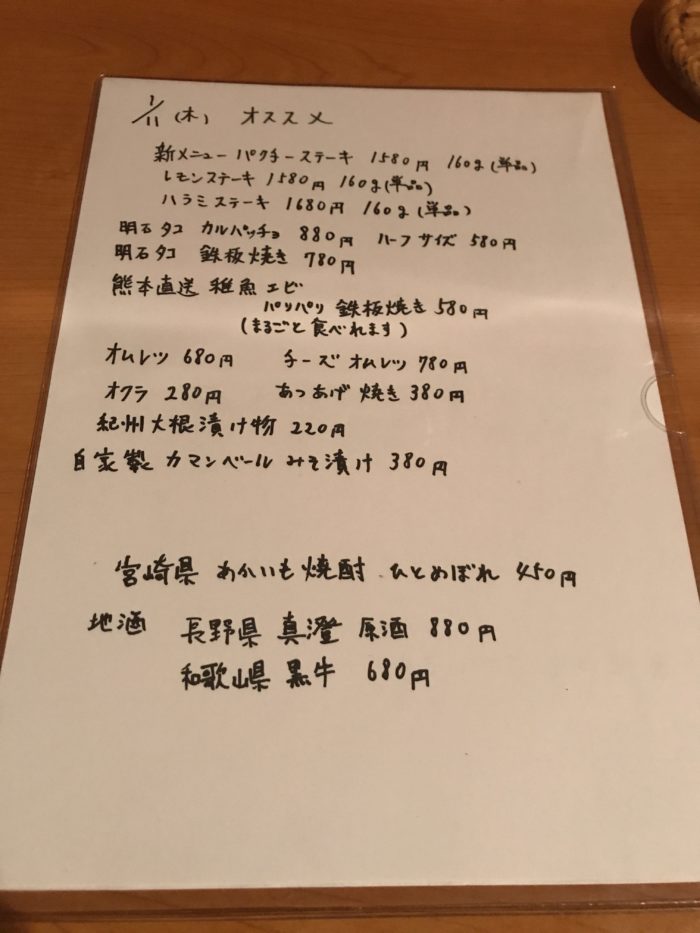 1/11(木) オススメ
新メニュー パクチーステーキ 1580円 160g(単品)
レモンステーキ 1580円 160g(単品)
ハラミステーキ 1680円 160g(単品)
明石タコ カルパッチョ 880円 ハーフサイズ 580円
明石タコ 鉄板焼き 780円
熊本直送 稚魚エビ
パリパリ 鉄板焼き 580円
(まるごと食べれます)
オムレツ 680円 チーズオムレツ 780円
オクラ 280円 あつあげ焼き 380円
紀州大根漬け物 220円
自家製 カマンベール みそ漬け 380円
宮崎県 あかいも焼酎 ひとめぼれ 450円
地酒 長野県 真澄 原酒 880円
和歌山県 黒牛 680円